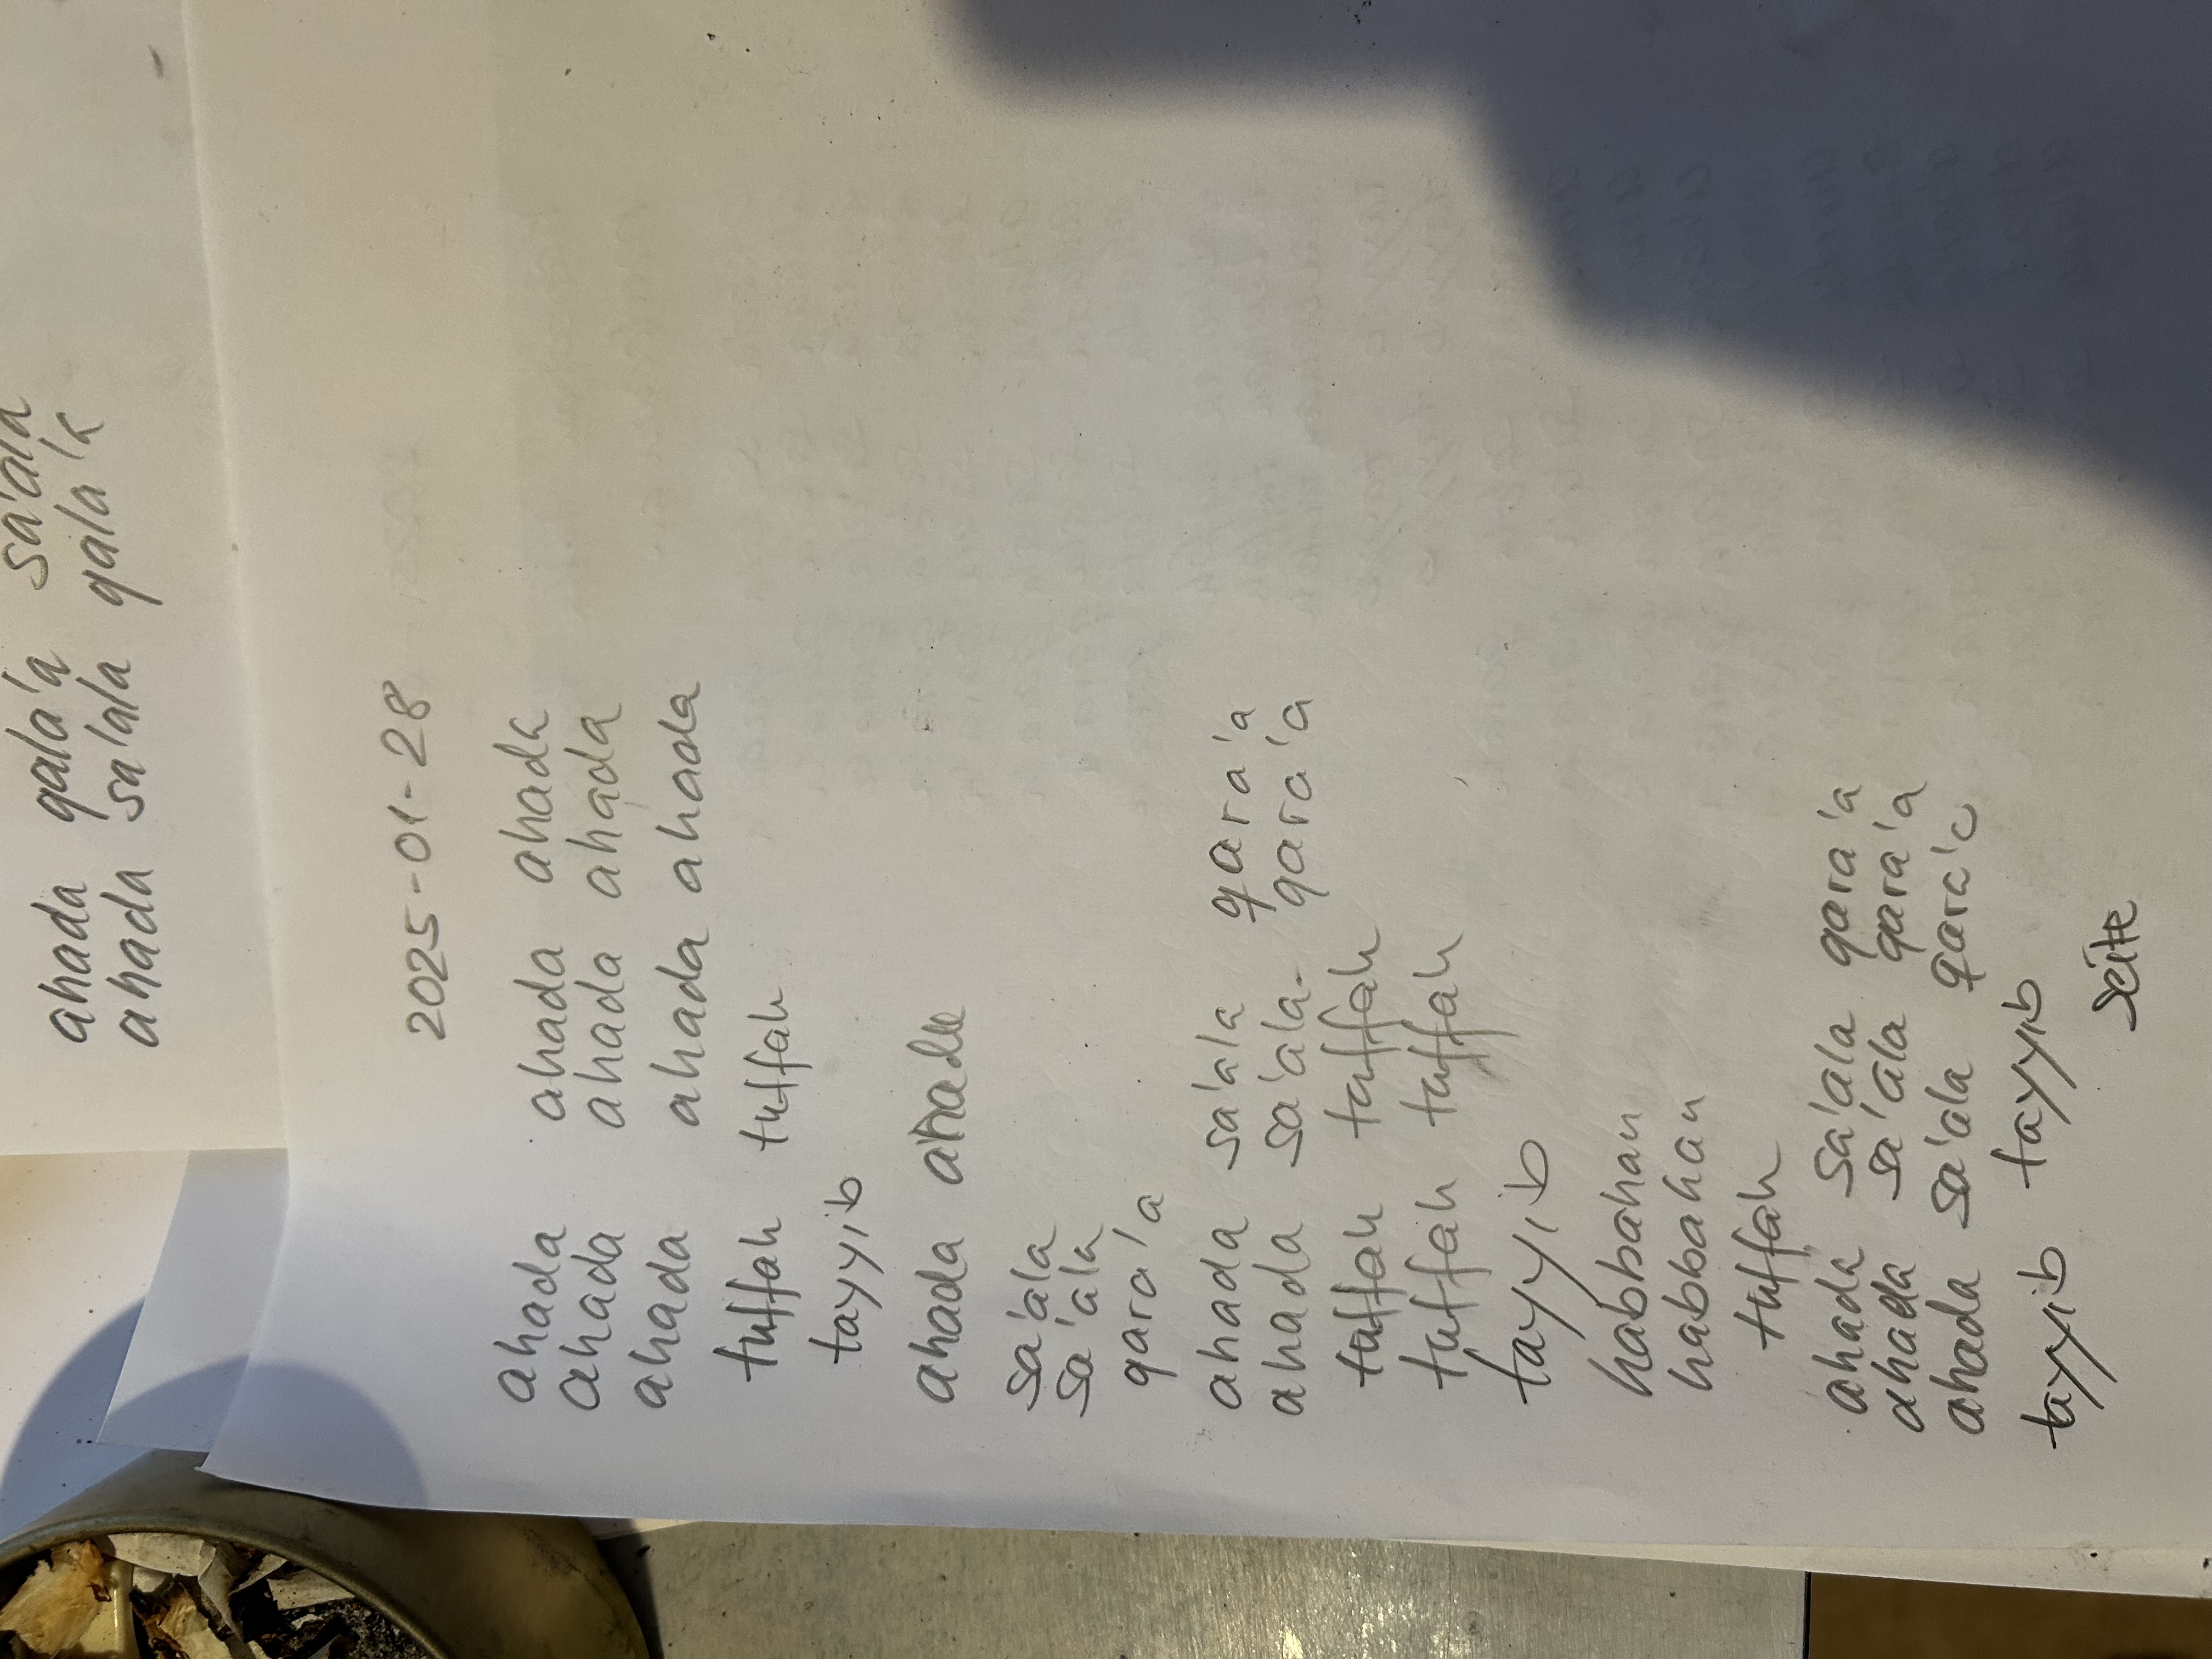 ahada qala'a sa'ala
ahada sa'ala qala'a
2025-01-28
ahada ahada ahada
ahada ahada ahada
ahada ahada ahada
tuffah tuffah
tayyib
ahada ahada
sa'ala
sa'ala
qara'a
ahada sa'ala qara'a
ahada sa'ala- qara'a
tuffah tuffah
tuffah tuffah
tayyib
habbahan
habbahan
tuffah
ahada sa'ala qara'a
ahada sa'ala qara'a
ahada sa'ala qara'a
tayyib tayyib
Seite